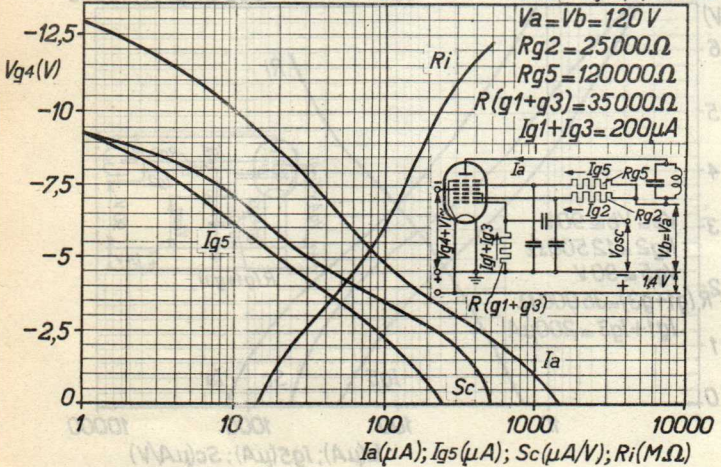 Va=Vb=120V
Rg2=25000Ω
Rg5=120000Ω
R(g1+g3)=35000Ω
Ig1+Ig3=200μA
Vg4(V)
-12,5
-10
-7,5
-5
-2,5
0
Ri
Ig5
Sc
Ia
Ia
Ig5
Rg5
Ig2
Rg2
Vg4+Vi~
Ig1+Ig3
Vosc
Vb=Va
1,4V
R(g1+g3)
1
10
100
1000
10000
Ia(μA); Ig5(μA); Sc(μA/V); Ri(MΩ)